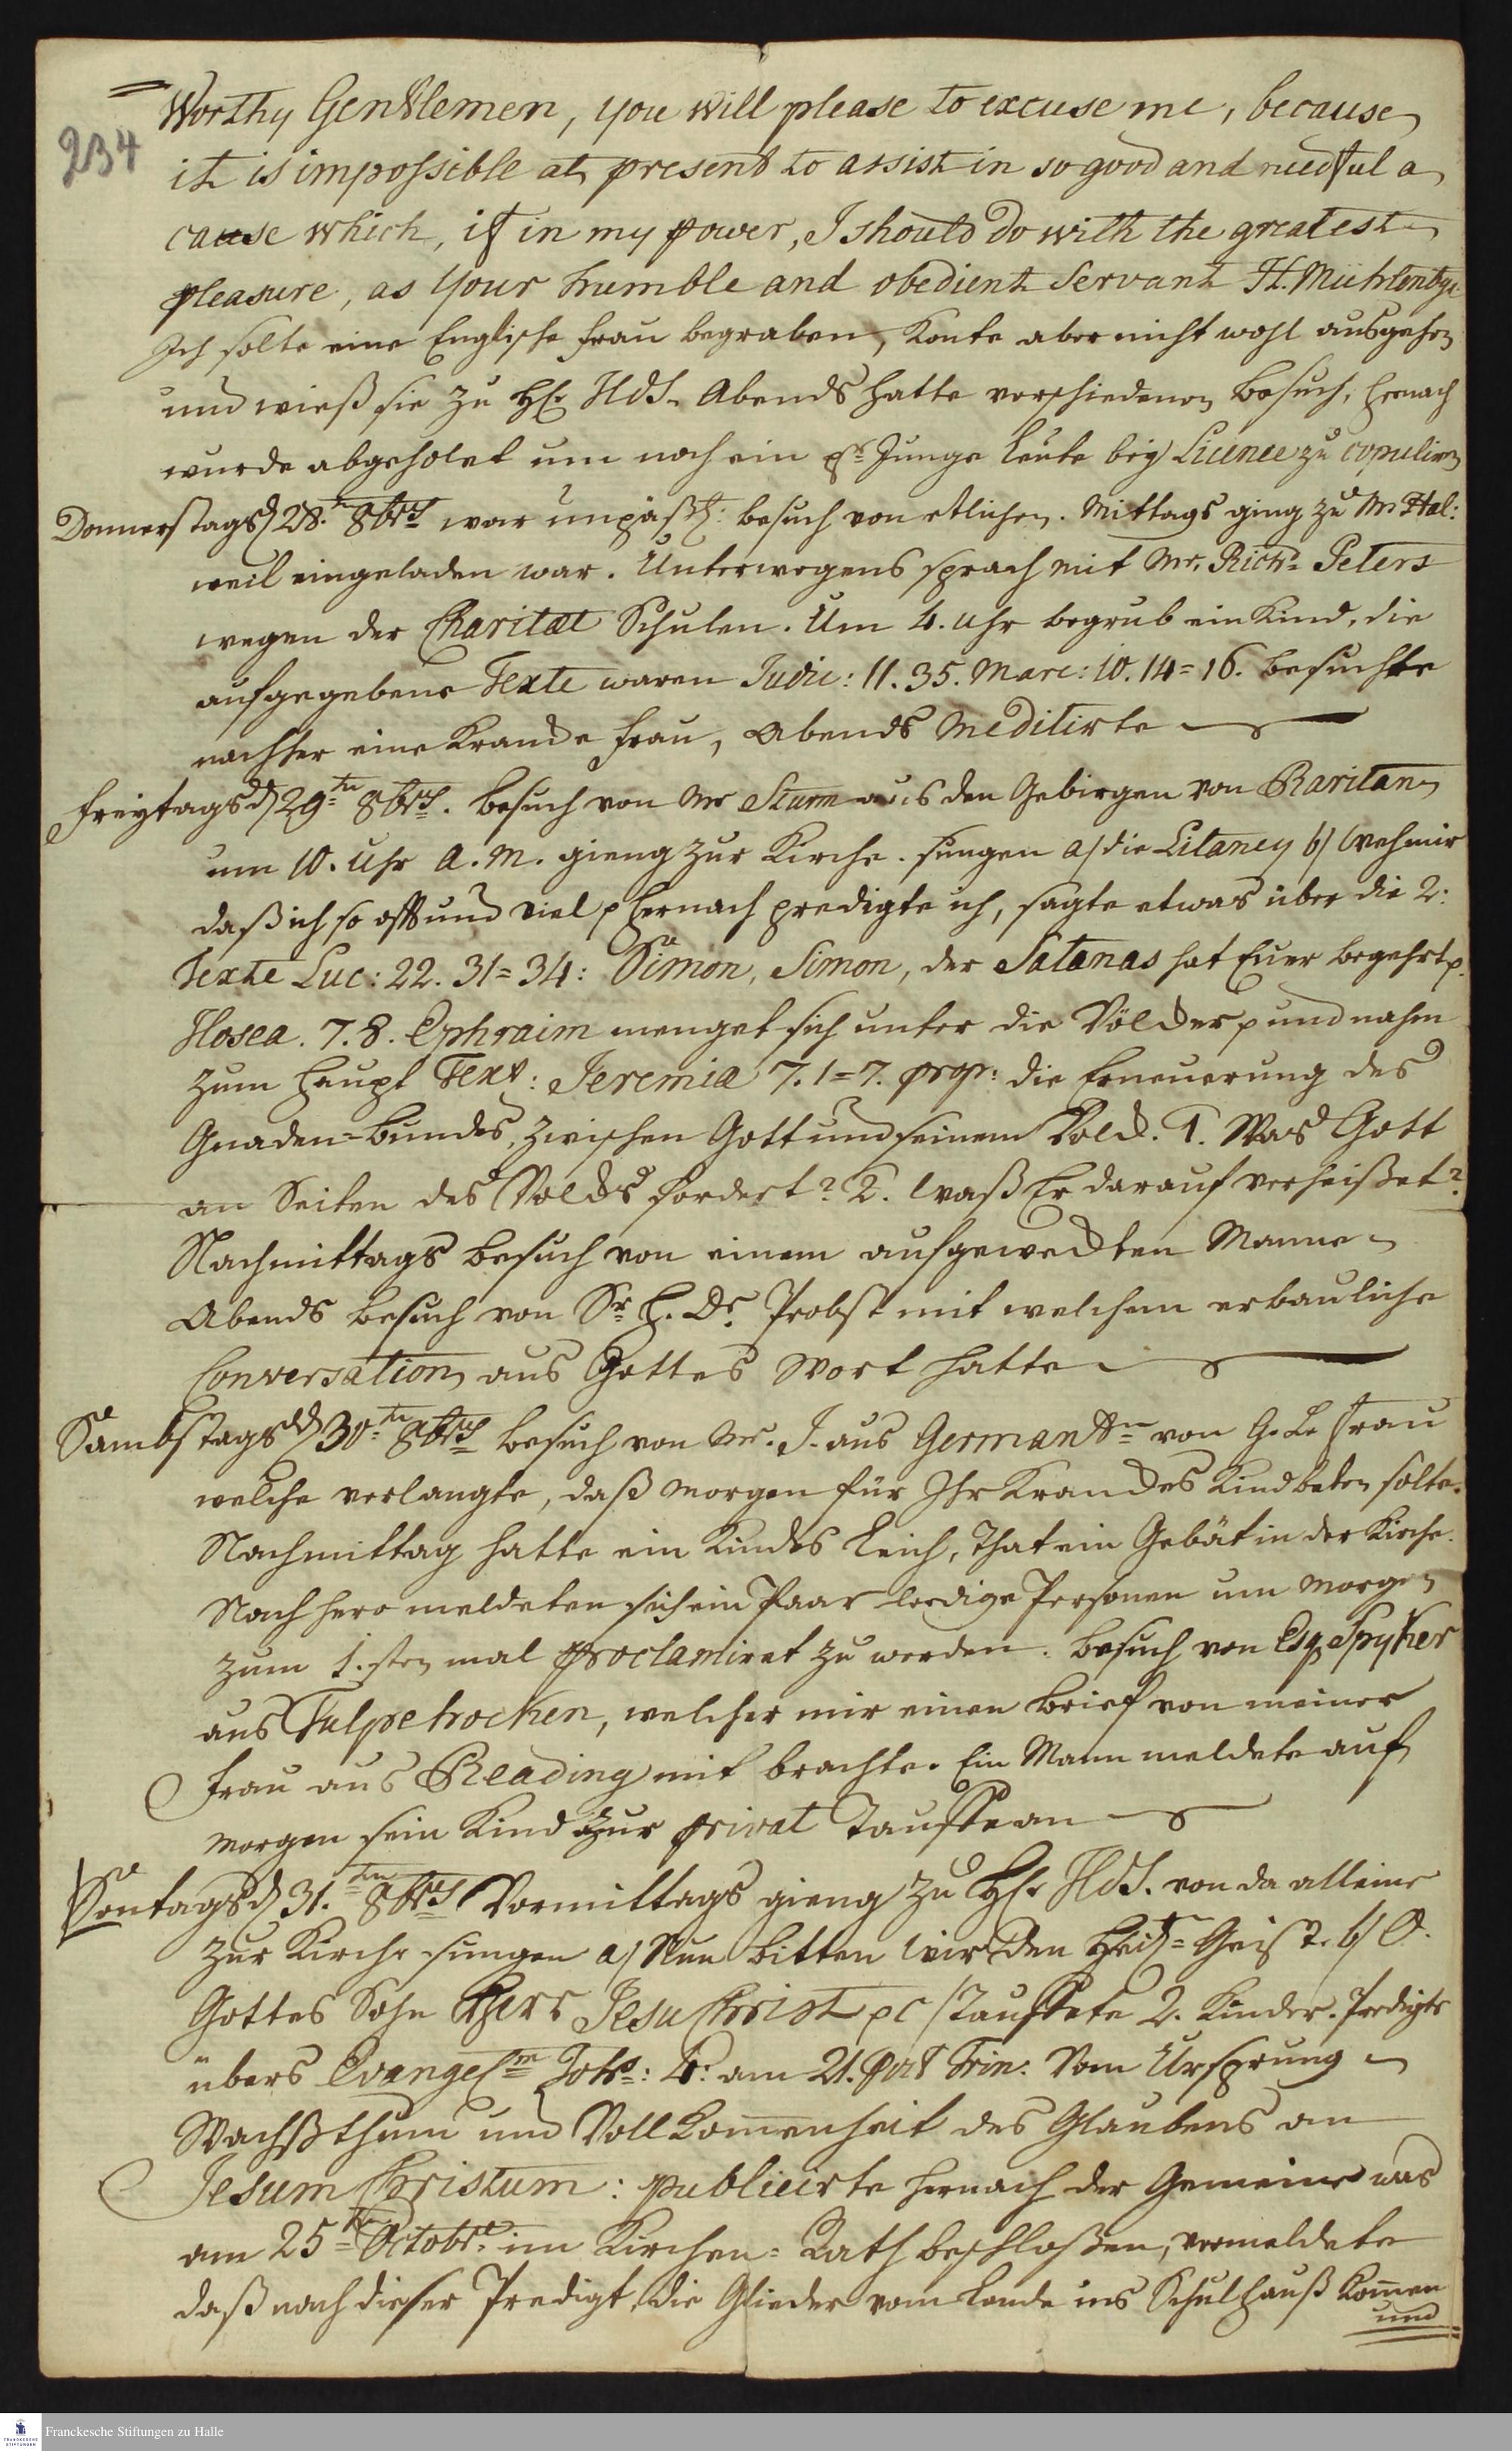 234
Worthy Gentlemen, you will please to excuse me, because
it is impossible at present to assist in so good and needful a
cause which, if in my power, I should do with the greatest
pleasure, as Your humble and obedient Servant H. Mühlenbg:
Ich solte eine Englische Frau begraben, konte aber nicht wohl ausgehen
und wieß sie zu HE. Hds. Abends hatte verschiedenen Besuch, hernach
wurde abgeholet um noch ein pr Junge Leute bey Licence zu copuliren
Donnerstags d 28.t 8br war unpäßl: Besuch von etlichen. Mittags ging zu Mr Hal:
weil eingeladen war. Unterwegens sprach mit Mr. Richd Peters
wegen der Charitæt Schulen. Um 4. Uhr begrub ein Kind, die
aufgegebene Texte waren Judic: 11. 35. Marc: 10. 14=16. besuchte
nachher eine krancke Frau, Abends Meditirte
Freytags d 29ten 8br. Besuch von Mr Sturm aus den Gebirgen von Raritan
um 10. Uhr a. m. gieng zur Kirche. sungen a/ die Litaney b/ Weh mir
daß ich so offt und viel p hernach predigte ich, sagte etwas über die 2:
Texte Luc: 22. 31=34: Simon, Simon, der Satanas hat Euer begehrt p.
Hosea. 7. 8. Ephraim menget sich unter die Völcker p und nahm
zum Haupt Text: Jeremia 7. 1=7. prop: die Erneuerung des
Gnaden=Bundes, zwischen Gott und seinem Volck. 1. Was Gott
an Seiten des Volcks fordert? 2. Waß Er darauf verheißet?
Nachmittags Besuch von einem aufgeweckten Manne
Abends Besuch von Sr. H. Dr. Probst mit welchem erbauliche
Conversation aus Gottes Wort hatte
Sambstags d 30ten 8br Besuch von Mr. J. aus Germantn von G. Le Frau
welche verlangte, daß morgen für Ihr Kranckes Kind beten solte.
Nachmittag hatte ein Kindes Leich, That ein Gebät in der Kirche.
Nachhero meldeten sich ein Paar ledige Personen um morgen
zum 1.sten mal proclamiret zu werden. Besuch von Esq Spyker
aus Tulpehocken, welcher mir einen Brief von meiner
Frau aus Reading mit brachte. Ein Mann meldete auf
morgen sein Kind zur privat Tauffe an
Sontags d 31.ten 8br Vormittags gieng zu HE. Hds. von da alleine
zur Kirche sungen a/ Nun bitten wir den Heil= Geist. b/ O
Gottes Sohn Herr Jesu Christ p c/ Tauffete 2. Kinder. Predigte
übers Evangelm Joh: 4: am 21. post Trin: Vom Ursprung
Wachßthum und Vollkommenheit des Glaubens an
Jesum Christum: publicirte hernach der Gemeine was
am 25ten Octobr. im Kirchen=Rath beschloßen, vermeldete
daß nach dieser Predigt, die Glieder vom Lande ins Schulhauß kommen
und
Franckesche Stiftungen zu Halle